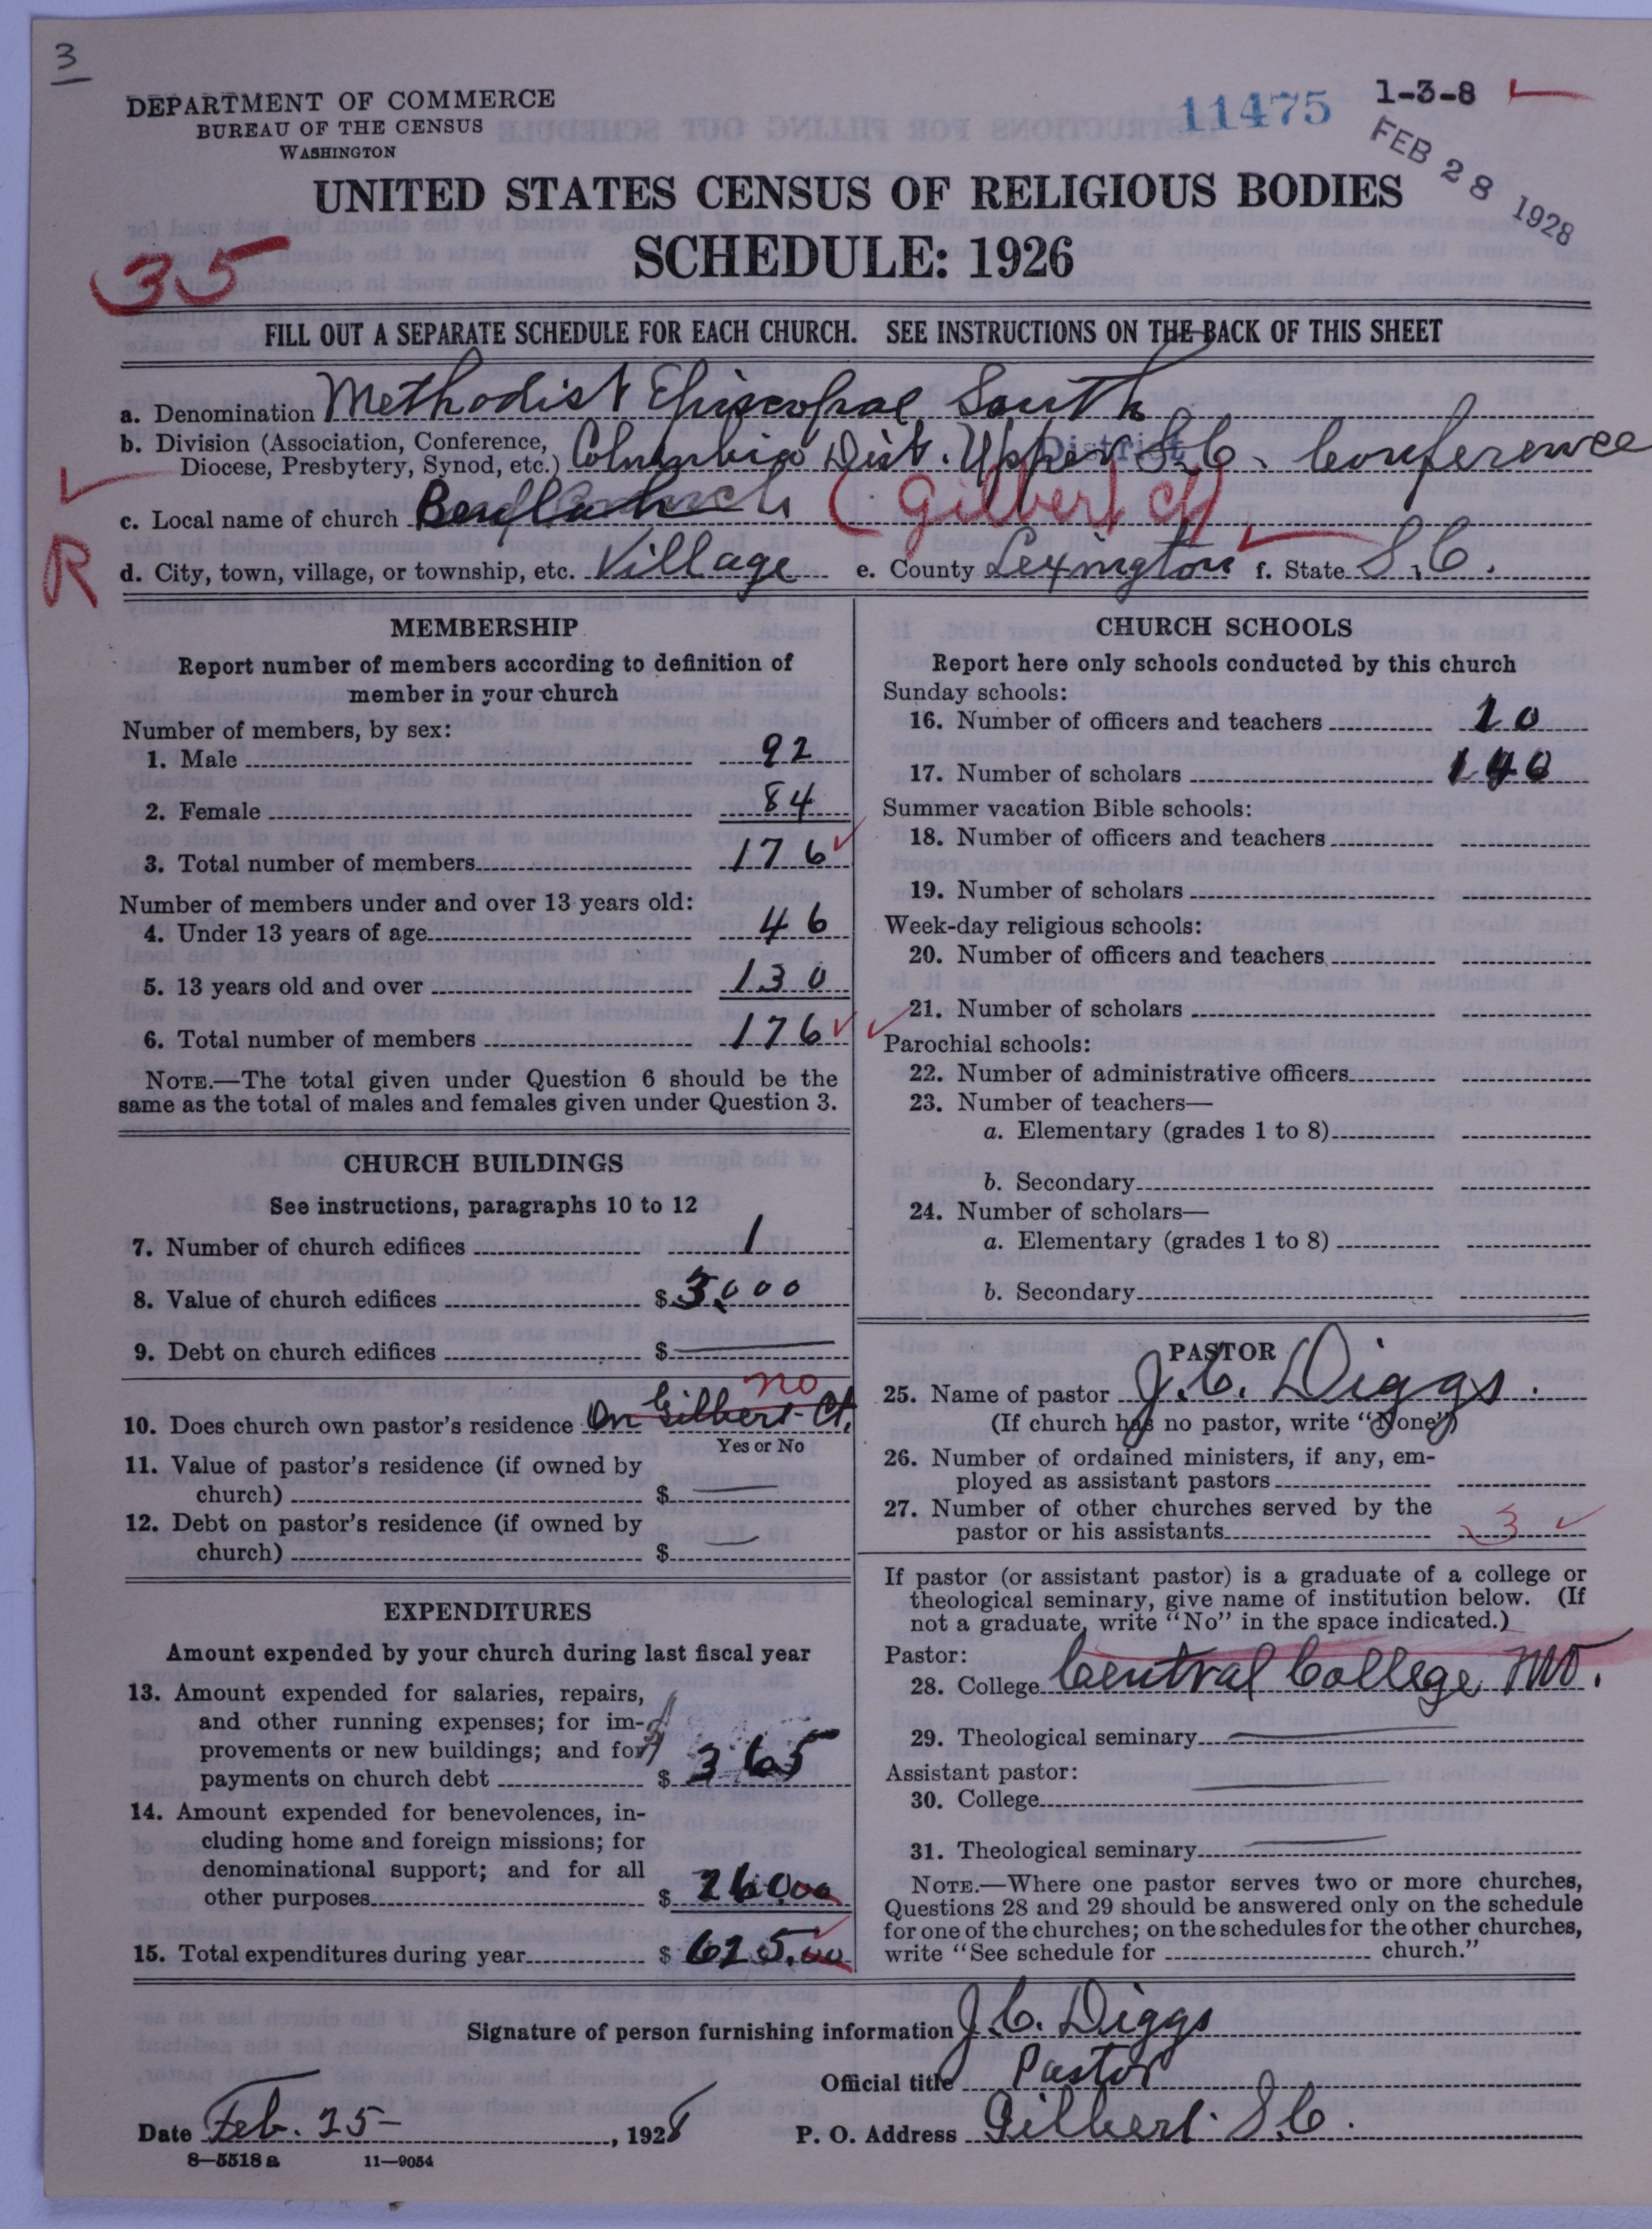 3
DEPARTMENT OF COMMERCE
BUREAU OF THE CENSUS
WASHINGTON
11475
1-3-8
FEB 28 1928
UNITED STATES CENSUS OF RELIGIOUS BODIES
SCHEDULE: 1926
35
FILL OUT A SEPARATE SCHEDULE FOR EACH CHURCH. SEE INSTRUCTIONS ON THE BACK OF THIS SHEET
a. Denomination Methodist Episcopal South
b. Division (Association, Conference,
Diocese, Presbytery, Synod, etc.) Columbia Dist. Upper S.C. Conference
District
c. Local name of church (Gilbert Ct)
R
d. City, town, village, or township, etc. Village e. County Lexington f. State S.C.
MEMBERSHIP
Report number of members according to definition of
member in your church
Number of members, by sex:
1. Male 92
2. Female 84
3. Total number of members 176
Number of members under and over 13 years old:
4. Under 13 years of age 46
5. 13 years old and over 130
6. Total number of members 176
NOTE.—The total given under Question 6 should be the
same as the total of males and females given under Question 3.
CHURCH BUILDINGS
See instructions, paragraphs 10 to 12
7. Number of church edifices 1
8. Value of church edifices $ 3000
9. Debt on church edifices $
no
10. Does church own pastor's residence On Gilbert Ct.
Yes or No
11. Value of pastor's residence (if owned by
church) $
12. Debt on pastor's residence (if owned by
church) $
EXPENDITURES
Amount expended by your church during last fiscal year
13. Amount expended for salaries, repairs,
and other running expenses; for im-
provements or new buildings; and for
payments on church debt $ 365
14. Amount expended for benevolences, in-
cluding home and foreign missions; for
denominational support; and for all
other purposes $ 260.00
15. Total expenditures during year $ 625.00
CHURCH SCHOOLS
Report here only schools conducted by this church
Sunday schools:
16. Number of officers and teachers 10
17. Number of scholars 140
Summer vacation Bible schools:
18. Number of officers and teachers
19. Number of scholars
Week-day religious schools:
20. Number of officers and teachers
21. Number of scholars
Parochial schools:
22. Number of administrative officers
23. Number of teachers—
a. Elementary (grades 1 to 8)
b. Secondary
24. Number of scholars—
a. Elementary (grades 1 to 8)
b. Secondary
PASTOR
25. Name of pastor J.C. Diggs.
(If church has no pastor, write "None")
26. Number of ordained ministers, if any, em-
ployed as assistant pastors
27. Number of other churches served by the
pastor or his assistants 3
If pastor (or assistant pastor) is a graduate of a college or
theological seminary, give name of institution below. (If
not a graduate, write "No" in the space indicated.)
Pastor:
28. College Central College, Mo.
29. Theological seminary
Assistant pastor:
30. College
31. Theological seminary
NOTE.—Where one pastor serves two or more churches,
Questions 28 and 29 should be answered only on the schedule
for one of the churches; on the schedules for the other churches,
write "See schedule for church."
Signature of person furnishing information J.C. Diggs
Official title Pastor
Date Feb. 25 , 1928 P. O. Address Gilbert S.C.
8—5518 a 11—9054